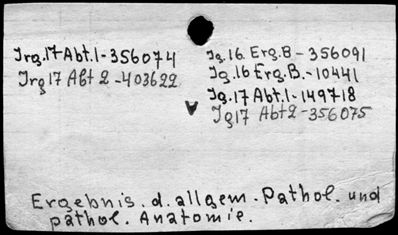 Jrg.17 Abt.1-356074
Jrg 17 Abt 2-403622
Jg.16 Erg.B-356091
Jg.16 Erg.B.-10441
Jg.17 Abt.1-149718
Jg17 Abt2-356075
Ergebnis. d. allgem. Pathol. und
pathol. Anatomie.